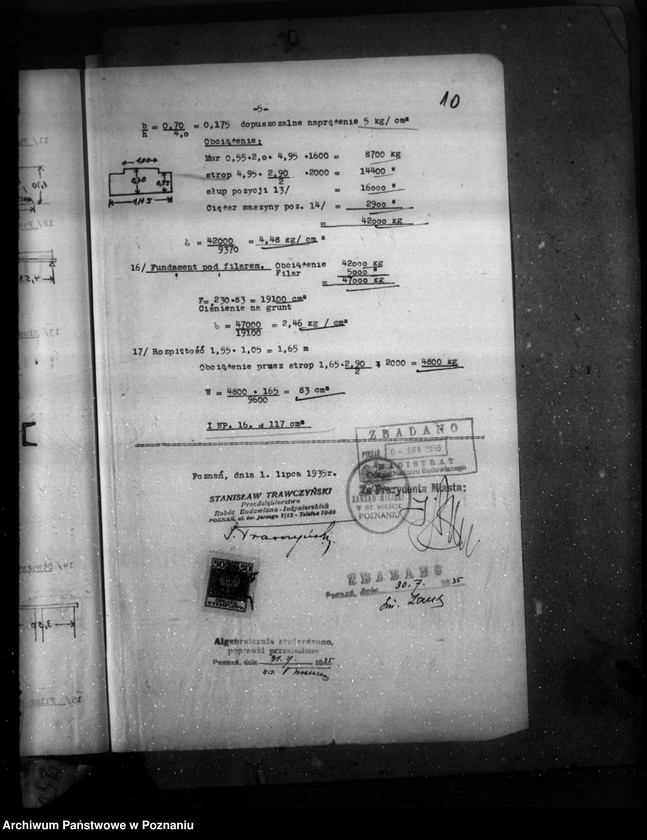 -5-
10
b/h = 0,70/4,0 = 0,175 dopuszczalne naprężenie 5 kg/ cm²
Obciążenie:
Mur 0,55·2,0· 4,95 ·1600 = 8700 kg
strop 4,95· 2,90/2 ·2000 = 14400 "
słup pozycji 13/ = 16000 "
Ciężar maszyny poz. 14/ = 2900 "
= 42000 kg
= 42000/9370 = 4,48 kg/ cm²
16/ Fundament pod filarem. Obciążenie 42000 kg
Filar 5000 "
= 47000 kg
F= 230·83 = 19100 cm²
Ciśnienie na grunt
= 47000/19100 = 2,46 kg / cm²
17/ Rozpiętość 1,55· 1,05 = 1,65 m
Obciążenie przez strop 1,65· 2,90/2 · 2000 = 4800 kg
W = 4800 · 165/9600 = 83 cm³
I NP. 16. = 117 cm³
ZBADANO
MAGISTRAT
Nadzoru Budowlanego
Poznań, dnia 1. lipca 1935r.
Za Prezydenta Miasta:
STANISŁAW TRAWCZYŃSKI
Przedsiębiorstwo
Robót Budowlano - Inżynierskich
ZARZĄD MIEJSKI
W ST. MIEŚCIE
POZNANIU
S. Trawczyński
50 50
ZBADANO
Poznań, dnia 30.7. 1935
Algebraicznie stwierdzono,
poprawki przeniesiono
Poznań, dnia 31.7. 1935
Archiwum Państwowe w Poznaniu